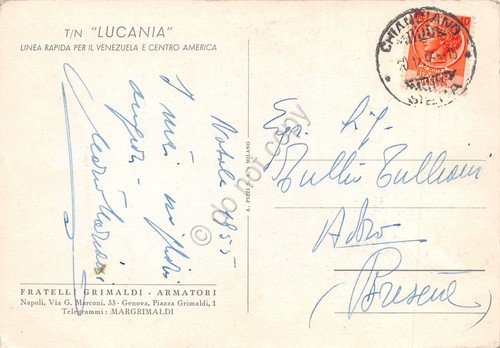 T/N "LUCANIA"
LINEA RAPIDA PER IL VENEZUELA E CENTRO AMERICA
CHIANCIANO
SIENA
Natale 1955
I miei migliori
auguri
Egr. Sig.
Tullio Tullioni
Adro
(Brescia)
A. PIZZI MILANO
FRATELLI GRIMALDI - ARMATORI
Napoli, Via G. Marconi, 33- Genova, Piazza Grimaldi, 1
Telegrammi: MARGRIMALDI
do not copy